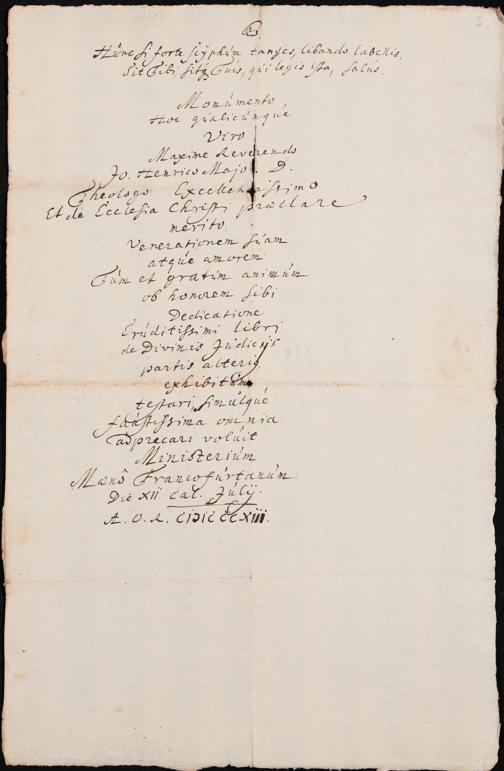 3
Hunc si forte scyphum tanges, libando labellis,
Sit Tibi sitq; Tuis, qui legis ista, salus.
Monumento
Hoc qualicunque
Viro
Maxime Reverendo
Jo. Henrico Majo. D.
Theologo Excellentissimo
Et de Ecclesia Christi præclare
merito
Venerationem suam
atque amorem
Tum et gratum animum
ob honorem sibi
Dedicatione
Eruditissimi libri
de Divinis Judicijs
partis alterius
exhibitum
testari simulque
faustissima omnia
adprecari voluit
Ministerium
Mœno Francofurtanum
Die XII cal. Julij.
A. O. R. CIƆIƆCCXIII.